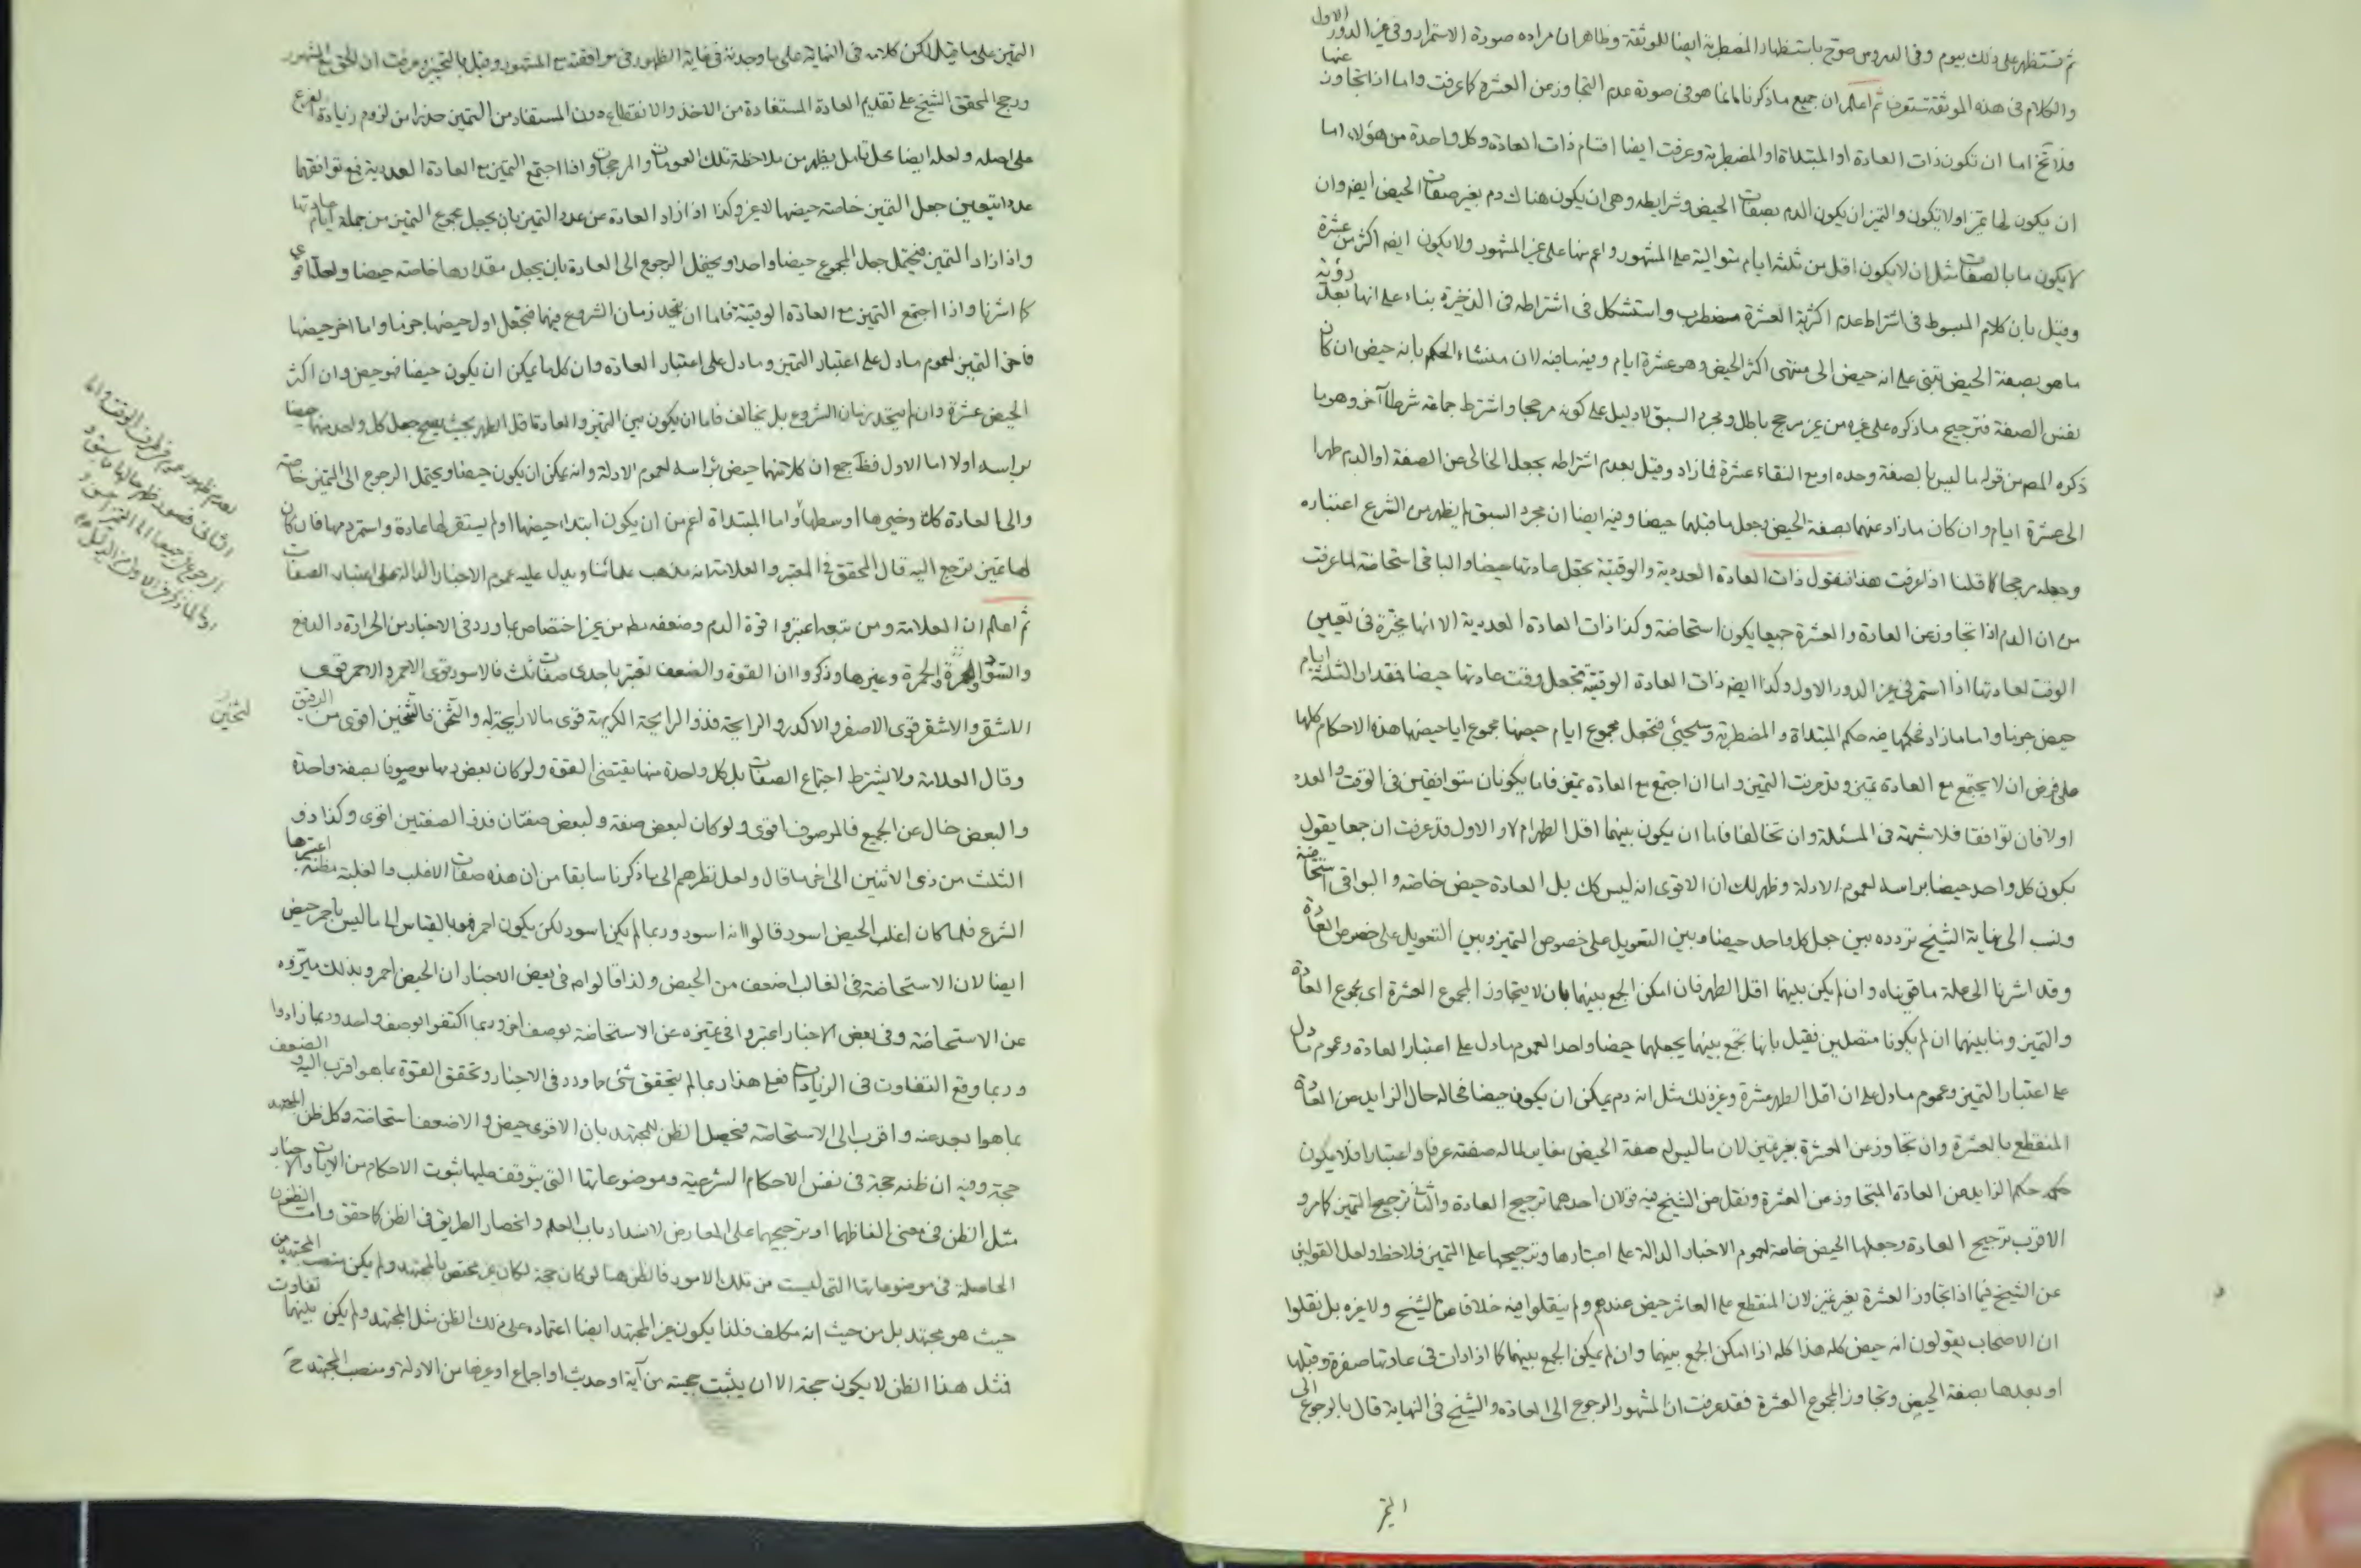 ثم تستظهر على ذلك بيوم وفى الدروس صرّح باستظهار المضطربة ايضا للموثقة وظاهر ان مراده صورة الاستمرار وفى غير الدور الاول
والكلام فى هذه الموثقة ستعرف ثم اعلم ان جميع ما ذكرنا انما هو فى صورة عدم التجاوز عن العشرة كما عرفت واما اذا تجاوز عنها
فلا تخ اما ان تكون ذات العادة او المبتداة او المضطربة وعرفت ايضا اقسام ذات العادة وكل واحدة من هؤلاء اما
ان يكون لها تميز او لا تكون والتميز ان يكون الدم بصفات الحيض وشرايطه وهى ان يكون هناك دم بغير صفات الحيض ايضه وان
لا يكون ما بالصفات مثل ان لا يكون اقل من ثلثة ايام متوالية على المشهور واعم منها على غير المشهور ولا يكون ايضه اكثر من عشرة
وقيل بان كلام المبسوط فى اشتراط عدم اكثرية العشرة مضطرب واستشكل فى اشتراطه فى الذخيرة بناء على انها بعد رؤية
ما هو بصفة الحيض تبنى على انه حيض الى منتهى اكثر الحيض وهو عشرة ايام وفيه ما فيه لان منشاء الحكم بانه حيض ان كان
نفس الصفة فترجيح ما ذكره على غيره من غير مرجح باطل ومجرد السبق لا دليل على كونه مرجحا واشترط جماعة شرطا آخر وهو ما
ذكره المصر من قوله ما ليس بالصفة وحده او مع النقاء عشرة فما زاد وقيل بعدم اشتراطه بجعل الخالى عن الصفة او الدم طهرا
الى عشرة ايام وان كان ما زاد عنهما بصفة الحيض وجعل ما قبلهما حيضا وفيه ايضا ان مجرد السبق لم يظهر من الشرع اعتباره
وجعله مرجحا كما قلنا اذا عرفت هذا فنقول ذات العادة العددية والوقتية تجعل عادتها حيضا والباقى استحاضة لما عرفت
من ان الدم اذا تجاوز عن العادة والعشرة جميعا يكون استحاضة وكذا ذات العادة العددية الا انها مخيرة فى تعيين
الوقت لعادتها اذا استمر فى غير الدور الاول وكذا ايضه ذات العادة الوقتية تجعل وقت عادتها حيضا فمقدار الثلثة ايام
حيض جزما واما ما زاد فحكمها فيه حكم المبتداة والمضطربة وسيجيئ فتجعل مجموع ايام حيضها مجموع ايام حيضها هذه الاحكام كلها
على فرض ان لا يجتمع مع العادة تميز وقد عرفت التميز واما ان اجتمع مع العادة تميز فاما يكونان متوافقين فى الوقت والعدد
او لا فان توافقا فلا شبهة فى المسئلة وان تخالفا فاما ان يكون بينهما اقل الطهر ام لا والاول قد عرفت ان جمعا يقول
بكون كل واحد حيضا براسه لعموم الادلة وظهر لك ان الاقوى انه ليس كك بل العادة حيض خاصة والبواقى استحاضة
ونسب الى نهاية الشيخ تردده بين جعل كل واحد حيضا وبين التعويل على خصوص التميز وبين التعويل على خصوص العادة
وقد اشرنا الى علة ما قويناه وان لم يكن بينهما اقل الطهر فان امكن الجمع بينهما بان لا يتجاوز المجموع العشرة اى مجموع العادة
والتميز وما بينهما ان لم يكونا متصلين فقيل بانها تجمع بينهما بجعلهما حيضا واحدا لعموم ما دل على اعتبار العادة وعموم ما دل
على اعتبار التميز وعموم ما دل على ان اقل الطهر عشرة وغير ذلك مثل انه دم يمكن ان يكون حيضا فحاله حال الزايد عن العادة
المنقطع بالعشرة وان تجاوز عن العشرة بغير تميز لان ما ليس له صفة الحيض مغاير لما له صفته عرفا واعتبارا فلا يكون
حكمه حكم الزايد عن العادة المتجاوز عن العشرة ونقل عن الشيخ فيه قولان احدهما ترجيح العادة والثانى ترجيح التميز كما مر و
الاقرب ترجيح العادة وجعلها الحيض خاصة لعموم الاخبار الدالة على اعتبارها وترجيحها على التميز فلاحظ ولعل القولين
عن الشيخ فيما اذا تجاوز العشرة بغير تميز لان المنقطع على العاشر حيض عندهم ولم ينقلوا فيه خلافا من الشيخ ولا غيره بل نقلوا
ان الاصحاب يقولون انه حيض كله هذا كله اذا امكن الجمع بينهما وان لم يمكن الجمع بينهما كما اذا رات فى عادتها صفرة وقبلها
او بعدها بصفة الحيض وتجاوز المجموع العشرة فقد عرفت ان المشهور الرجوع الى العادة والشيخ فى النهاية قال بالرجوع الى
التميز على ما قيل لكن كلامه فى النهاية على ما وجدته فى غاية الظهور فى موافقته مع المشهور وقيل بالتخيير وعرفت ان الحق مع المشهور
ورجح المحقق الشيخ على تقديم العادة المستفادة من الاخذ والانقطاع دون المستفاد من التميز حذرا من لزوم زيادة الفرع
على اصله ولعله ايضا محل تامل يظهر من ملاحظة تلك العمومات والمرجحات واذا اجتمع التميز مع العادة العددية فمع توافقهما
عددا يتعين جعل التميز خاصة حيضها لا غير وكذا اذا زاد العادة عن عدد التميز بان يجعل مجموع التميز من جملة ايام عادتها
واذا زاد التميز فيحتمل جعل المجموع حيضا واحدا ويحتمل الرجوع الى العادة بان يجعل مقدارها خاصة حيضا ولعله اقوى
كما اشرنا واذا اجتمع التميز مع العادة الوقتية فاما ان يتحد زمان الشروع فيهما فتجعل اول حيضها جزما واما اخر حيضها
فآخر التميز لعموم ما دل على اعتبار التميز وما دل على اعتبار العادة وان كل ما يمكن ان يكون حيضا فهو حيض وان اكثر
الحيض عشرة وان لم يتحد زمان الشروع بل تخالف فاما ان يكون بين التميز والعادة اقل الطهر بحيث يصح جعل كل واحد منهما حيضا
براسه او لا اما الاول فظ جمع ان كلا منهما حيض براسه لعموم الادلة وانه يمكن ان يكون حيضا ويحتمل الرجوع الى التميز خاصة
والى العادة كك وخيرها اوسطها واما المبتداة اعم من ان يكون ابتداء حيضها او لم يستقر لها عادة واستمر دمها فان كان
لها تميز ترجع اليه قال المحقق فى المعتبر والعلامة انه مذهب علمائنا ويدل عليه عموم الاخبار الدالة على اعتبار الصفات
ثم اعلم ان العلامة ومن تبعه اعتبروا قوة الدم وضعفه مطم من غير اختصاص بما ورد فى الاخبار من الحرارة والدفع
والسواد والحمرة وغيرها وذكروا ان القوة والضعف تعتبر باحدى صفات ثلث فالاسود قوى الاحمر والاحمر قوى
الاشقر والاشقر قوى الاصفر والاكدر والرايحة فذو الرايحة الكريهة قوى ما لا رايحة له والثخن فالثخين اقوى من الرقيق
وقال العلامة ولا يشترط اجتماع الصفات بل كل واحدة منها يقتضى القوة ولو كان بعض دمها موصوفا بصفة واحدة
والبعض خال عن الجميع فالموصوف اقوى ولو كان لبعض صفة ولبعض صفتان فذو الصفتين اقوى وكذا ذو
الثلث من ذى الاثنين الى اخر ما قال ولعل نظرهم الى ما ذكرنا سابقا من ان هذه صفات الاغلب والغلبة مظنة اعتبرها
الشرع فلما كان اغلب الحيض اسود قالوا انه اسود وربما لم يكن اسود لكن يكون احمر فهو بالقياس الى ما ليس باحمر حيض
ايضا لان الاستحاضة فى الغالب اضعف من الحيض ولذا قالوا م فى بعض الاخبار ان الحيض احمر وبذلك ميزوه
عن الاستحاضة وفى بعض الاخبار اعتبروا فى تميزه عن الاستحاضة بوصف اخر وربما اكتفوا بوصف واحد وربما زادوا
وربما وقع التفاوت فى الزيادات فعلى هذا ربما لم يتحقق شئ ما ورد فى الاخبار وتحقق القوة بما هو اقرب اليه والضعف
بما هو ابعد عنه واقرب الى الاستحاضة فيحصل الظن للمجتهد بان الاقوى حيض والاضعف استحاضة وكل ظن المجتهد
حجة وفيه ان ظنه حجة فى نفس الاحكام الشرعية وموضوعاتها التى يتوقف عليها ثبوت الاحكام من الايات والاخبار
مثل الظن فى معنى الفاظهما او ترجيحهما على المعارض لانسداد باب العلم وانحصار الطريق فى الظن كما حقق واما الظنون
الحاصلة فى موضوعاتها التى ليست من تلك الامور فالظن هنا لو كان حجة لكان غير مختص بالمجتهد ولم يكن منصب المجتهد من
حيث هو مجتهد بل من حيث انه مكلف فلذا يكون غير المجتهد ايضا اعتماده على ذلك الظن مثل المجتهد ولم يكن بينهما تفاوت
فمثل هذا الظن لا يكون حجة الا ان يثبت حجيته من آية او حديث او اجماع او غيرها من الادلة ومنصب المجتهد ح
الثخين